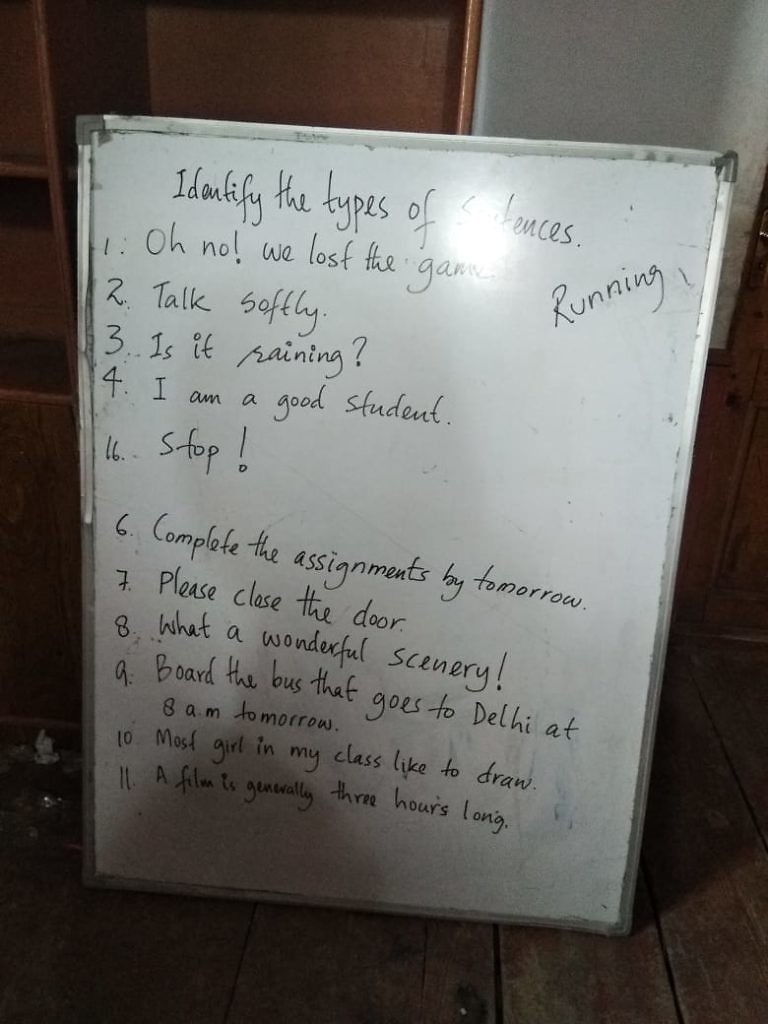 Identify the types of Sentences.
1. Oh no! we lost the game.
Running
2. Talk softly.
3. Is it raining?
4. I am a good student.
16. Stop!
6. Complete the assignments by tomorrow.
7. Please close the door.
8. What a wonderful scenery!
9. Board the bus that goes to Delhi at
8 a.m tomorrow.
10 Most girl in my class like to draw.
11. A film is generally three hours long.